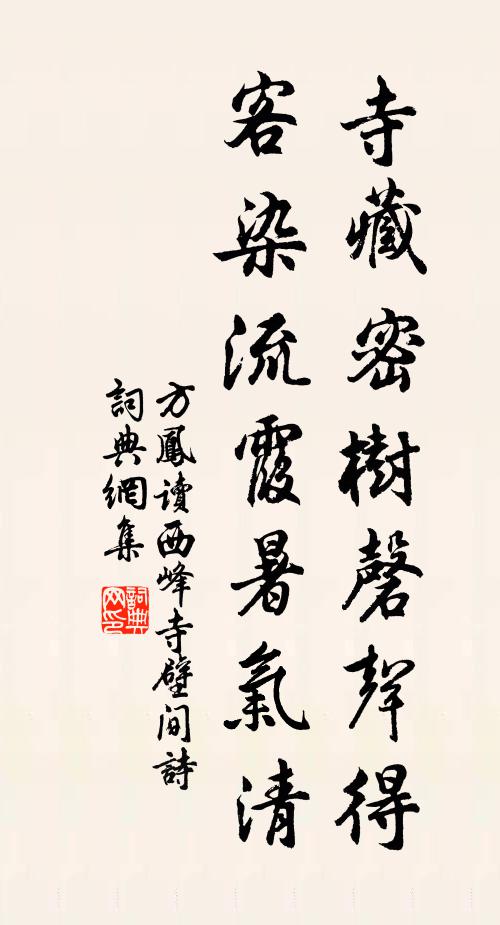 寺藏密樹磬聲得
客染流霞暑氣清
方鳳讀西峰寺壁間詩
詞典網集
詞典网印